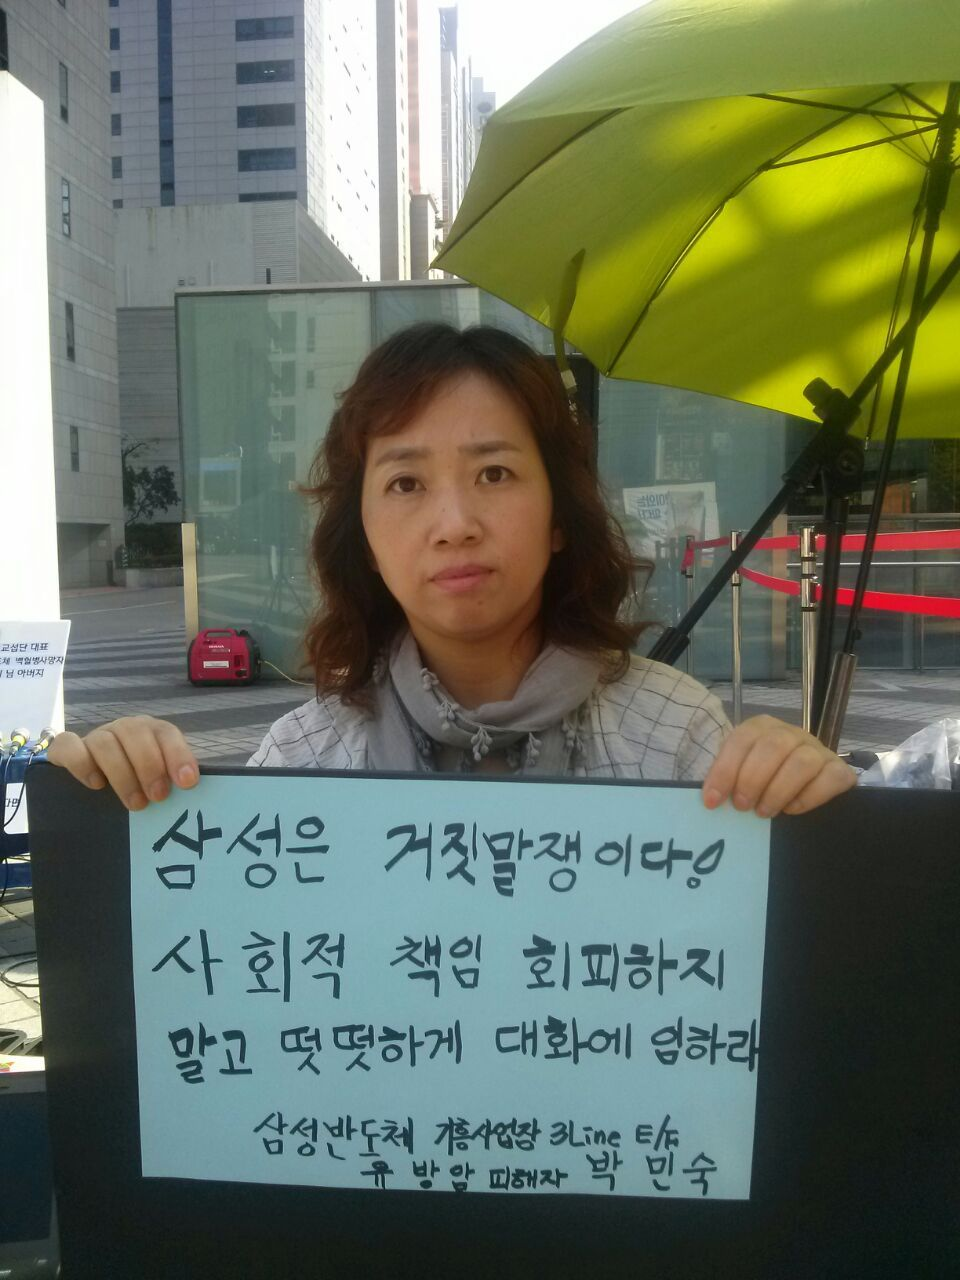 삼성은 거짓말쟁이다!
사회적 책임 회피하지
말고 떳떳하게 대화에 임하라
삼성반도체 기흥사업장 3Line E/F
유방암 피해자 박민숙
교섭단 대표
체 백혈병사망자
님 아버지